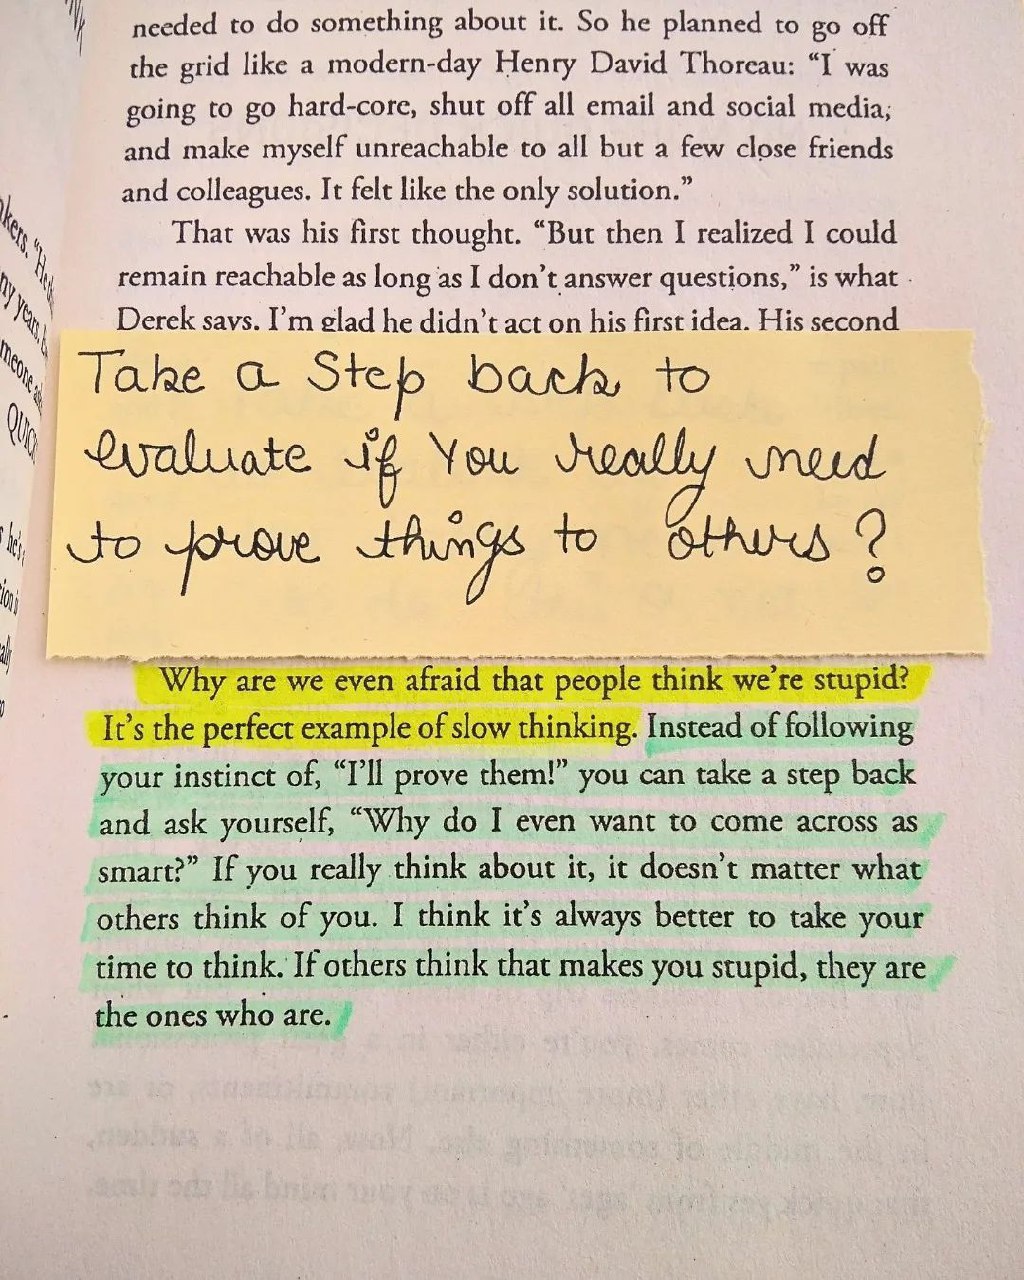 needed to do something about it. So he planned to go off
the grid like a modern-day Henry David Thoreau: “I was
going to go hard-core, shut off all email and social media,
and make myself unreachable to all but a few close friends
and colleagues. It felt like the only solution.”
That was his first thought. “But then I realized I could
remain reachable as long as I don’t answer questions,” is what
Derek says. I’m glad he didn’t act on his first idea. His second
Take a Step back to
evaluate if You really need
to prove things to others?
Why are we even afraid that people think we’re stupid?
It’s the perfect example of slow thinking. Instead of following
your instinct of, “I’ll prove them!” you can take a step back
and ask yourself, “Why do I even want to come across as
smart?” If you really think about it, it doesn’t matter what
others think of you. I think it’s always better to take your
time to think. If others think that makes you stupid, they are
the ones who are.